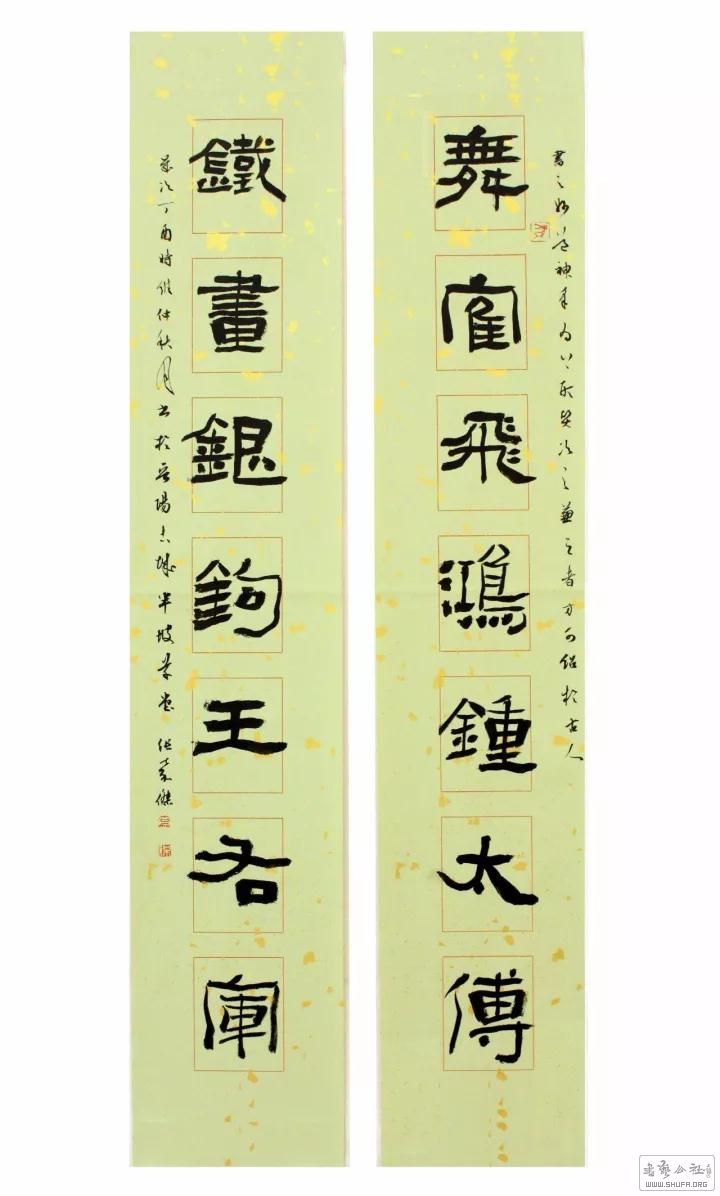 舞隺飛鴻鍾太傅
書之妙道神采為上形質次之兼之者方可紹於古人
鐵畫銀鉤王右軍
歲次丁酉時維仲秋月書於晉陽古城半坡草堂
书艺公社
WWW.SHUFA.ORG